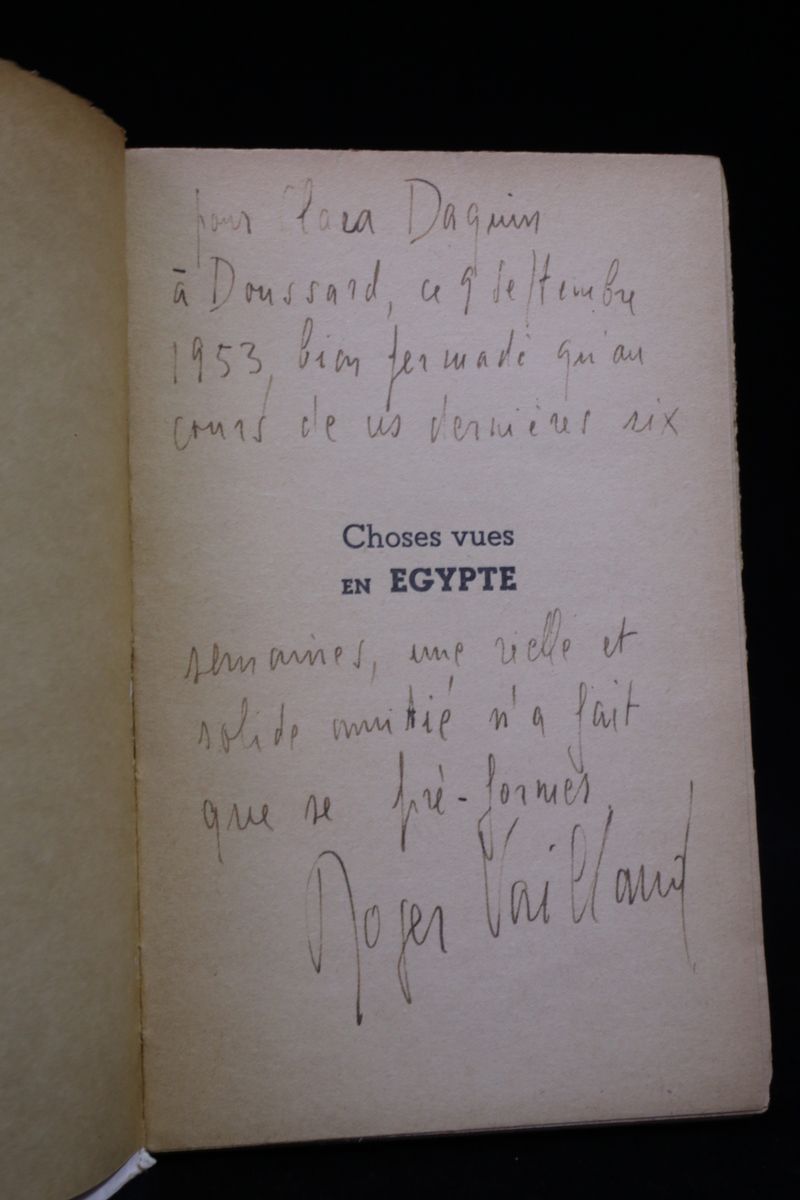 pour Clara Daquin
à Doussard, ce 9 septembre
1953, bien persuadé qu'au
cours de ces dernières six
Choses vues
EN EGYPTE
semaines, une réelle et
solide amitié n'a fait
que se pré-former
Roger Vailland